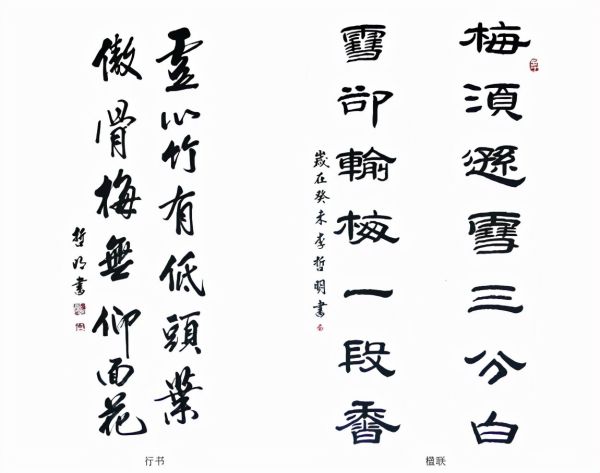 梅須遜雪三分白
雪卻輸梅一段香
歲在癸未李哲明書
虛心竹有低頭葉
傲骨梅無仰面花
哲明書
行书
楹联